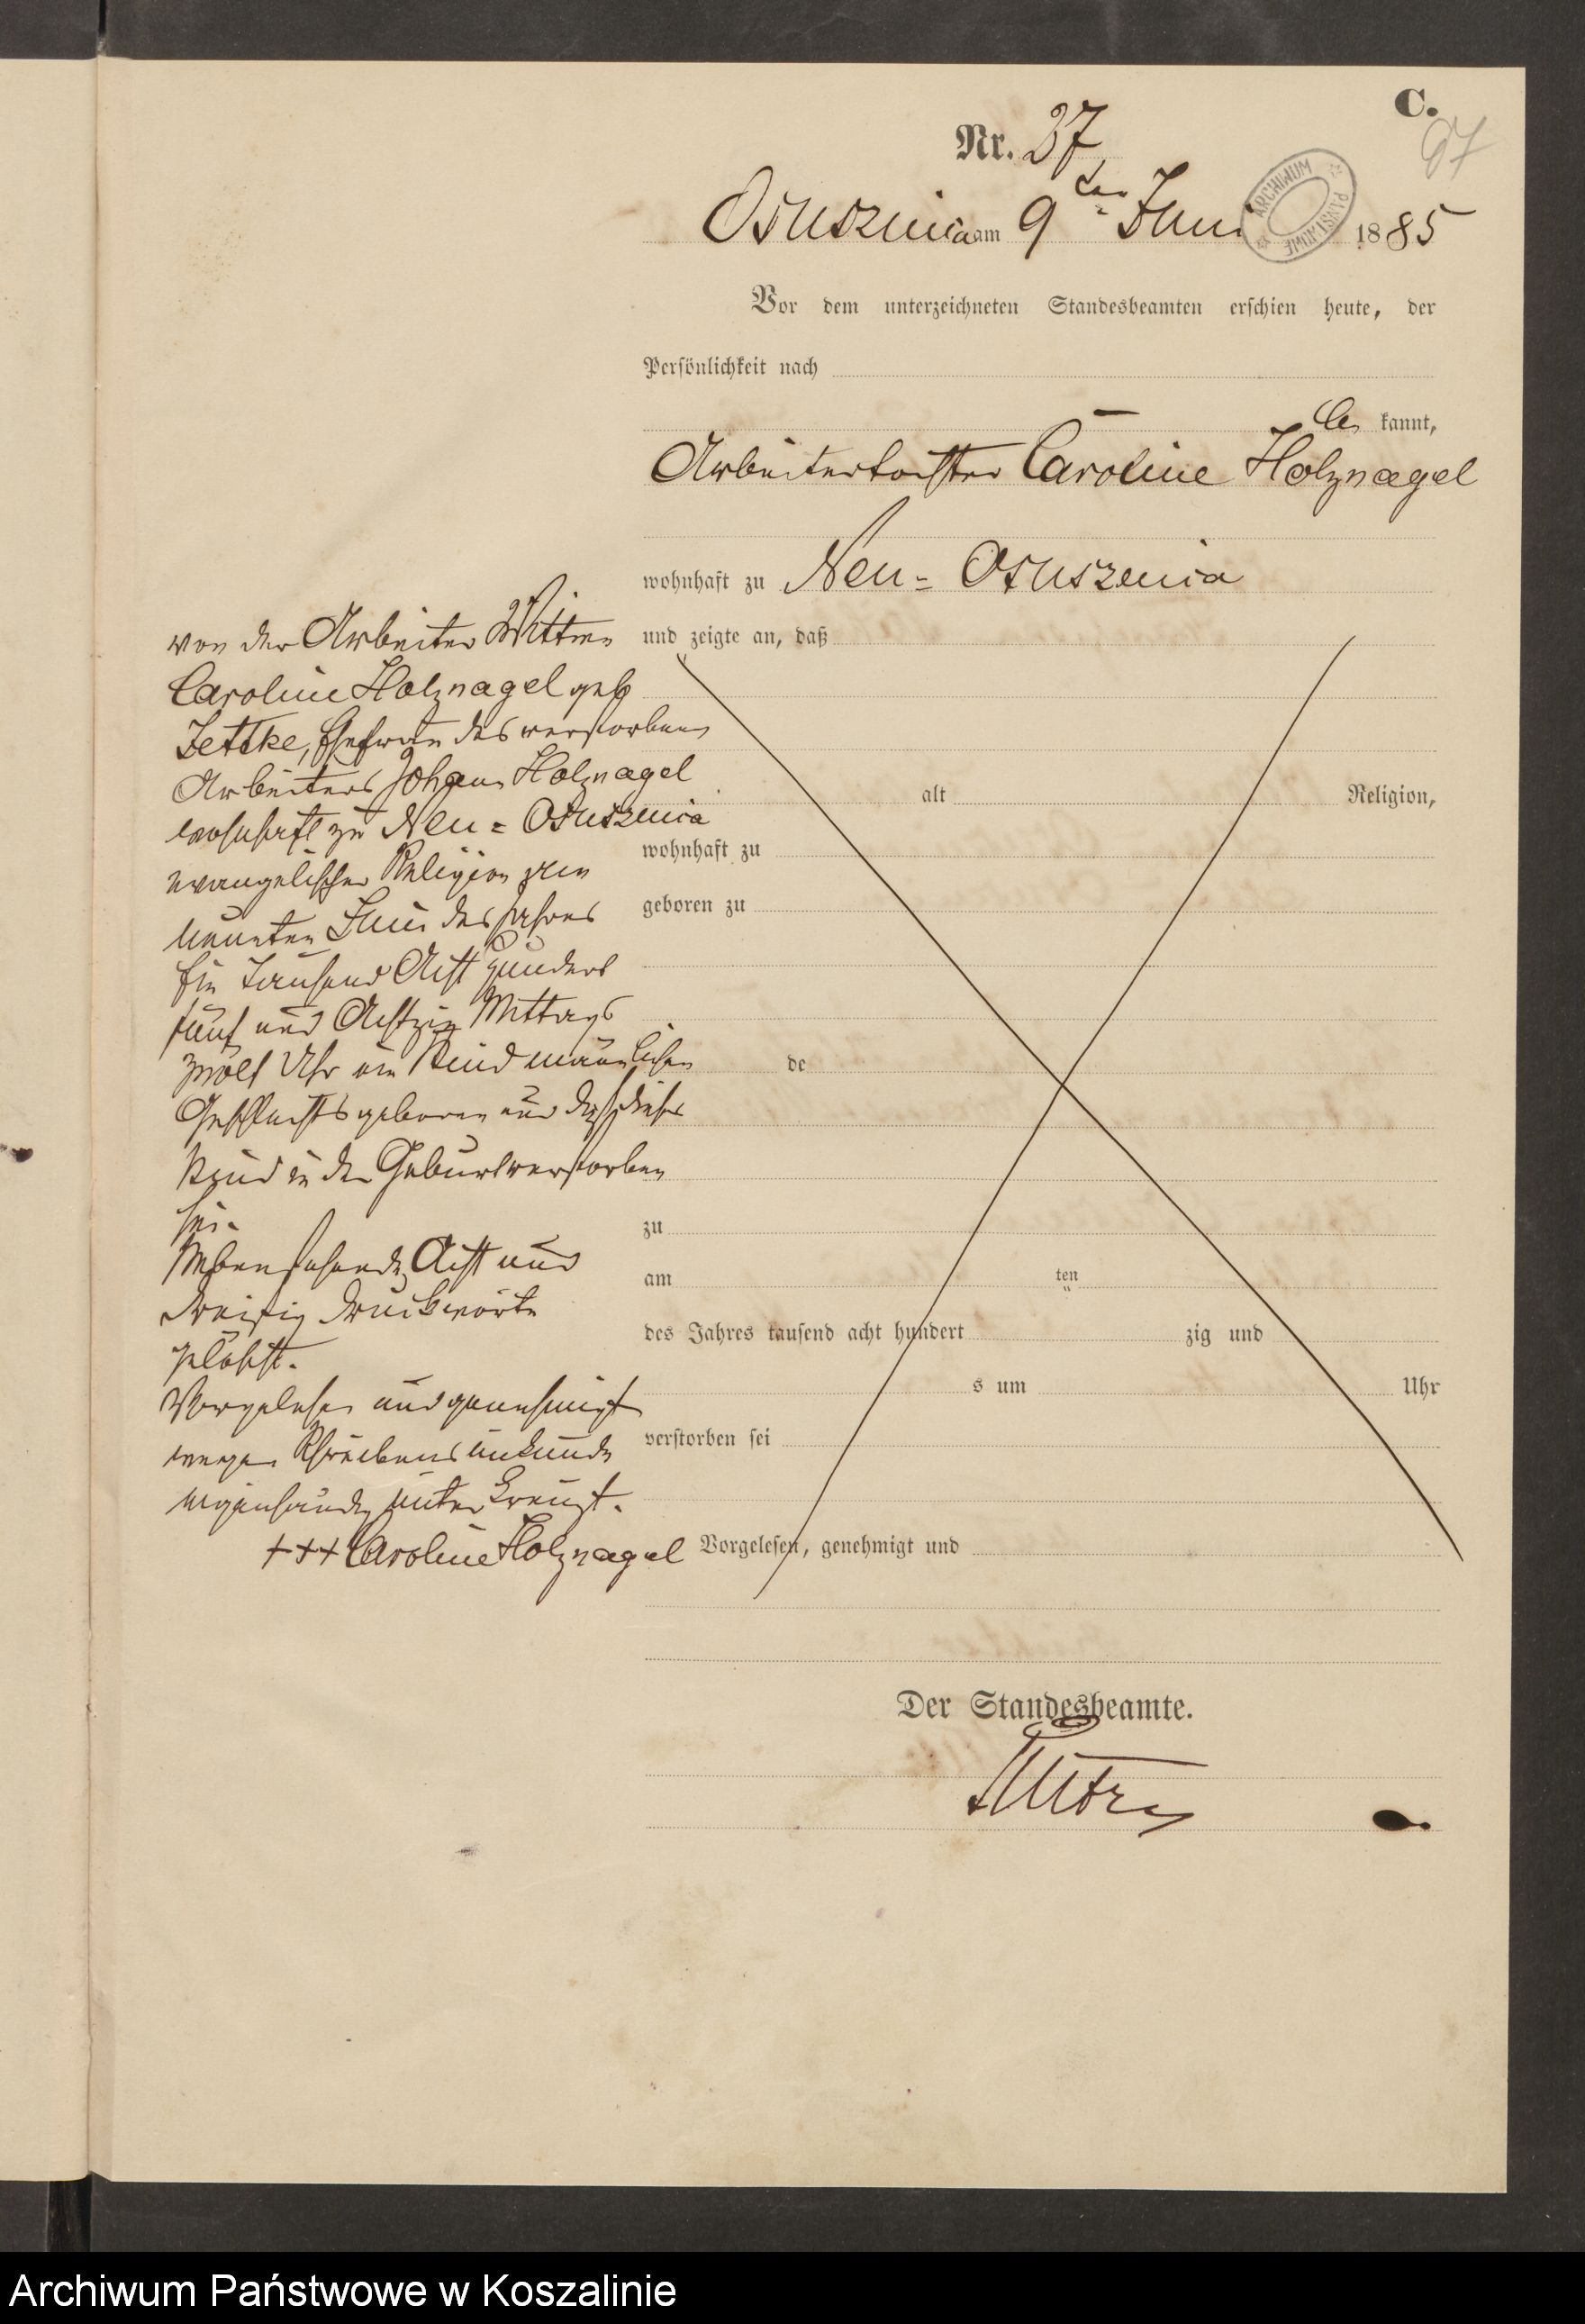 C.
97
Nr. 37
Osusznica am 9ten Juni 1885
ARCHIWUM PAŃSTWOWE
Vor dem unterzeichneten Standesbeamten erschien heute, der
Persönlichkeit nach
be kannt,
Arbeitertochter Caroline Holznagel
wohnhaft zu Neu-Osuszenica
und zeigte an, daß
von der Arbeiter Wittwe
Caroline Holznagel geb
Zettke, Ehefrau des verstorbenen
Arbeiters Johann Holznagel
wohnhaft zu Neu-Osuszenica
evangelischer Religion
neunten Juni des Jahres
Ein Tausend Acht Hundert
fünf und Achtzig Mittags
zwölf Uhr ein Kind männlichen
Geschlechts geboren und daß dieses
Kind in der Geburt verstorben
sei.
Nebenstehende Acht und
dreißig Druckworte
gelöscht.
Vorgelesen und genehmigt
wegen Schreibensunkunde
unterkreuzt.
+++ Caroline Holznagel
alt Religion,
wohnhaft zu
geboren zu
de
zu
am ten
des Jahres tausend acht hundert zig und
s um Uhr
verstorben sei
Vorgelesen, genehmigt und
Der Standesbeamte.
Archiwum Państwowe w Koszalinie